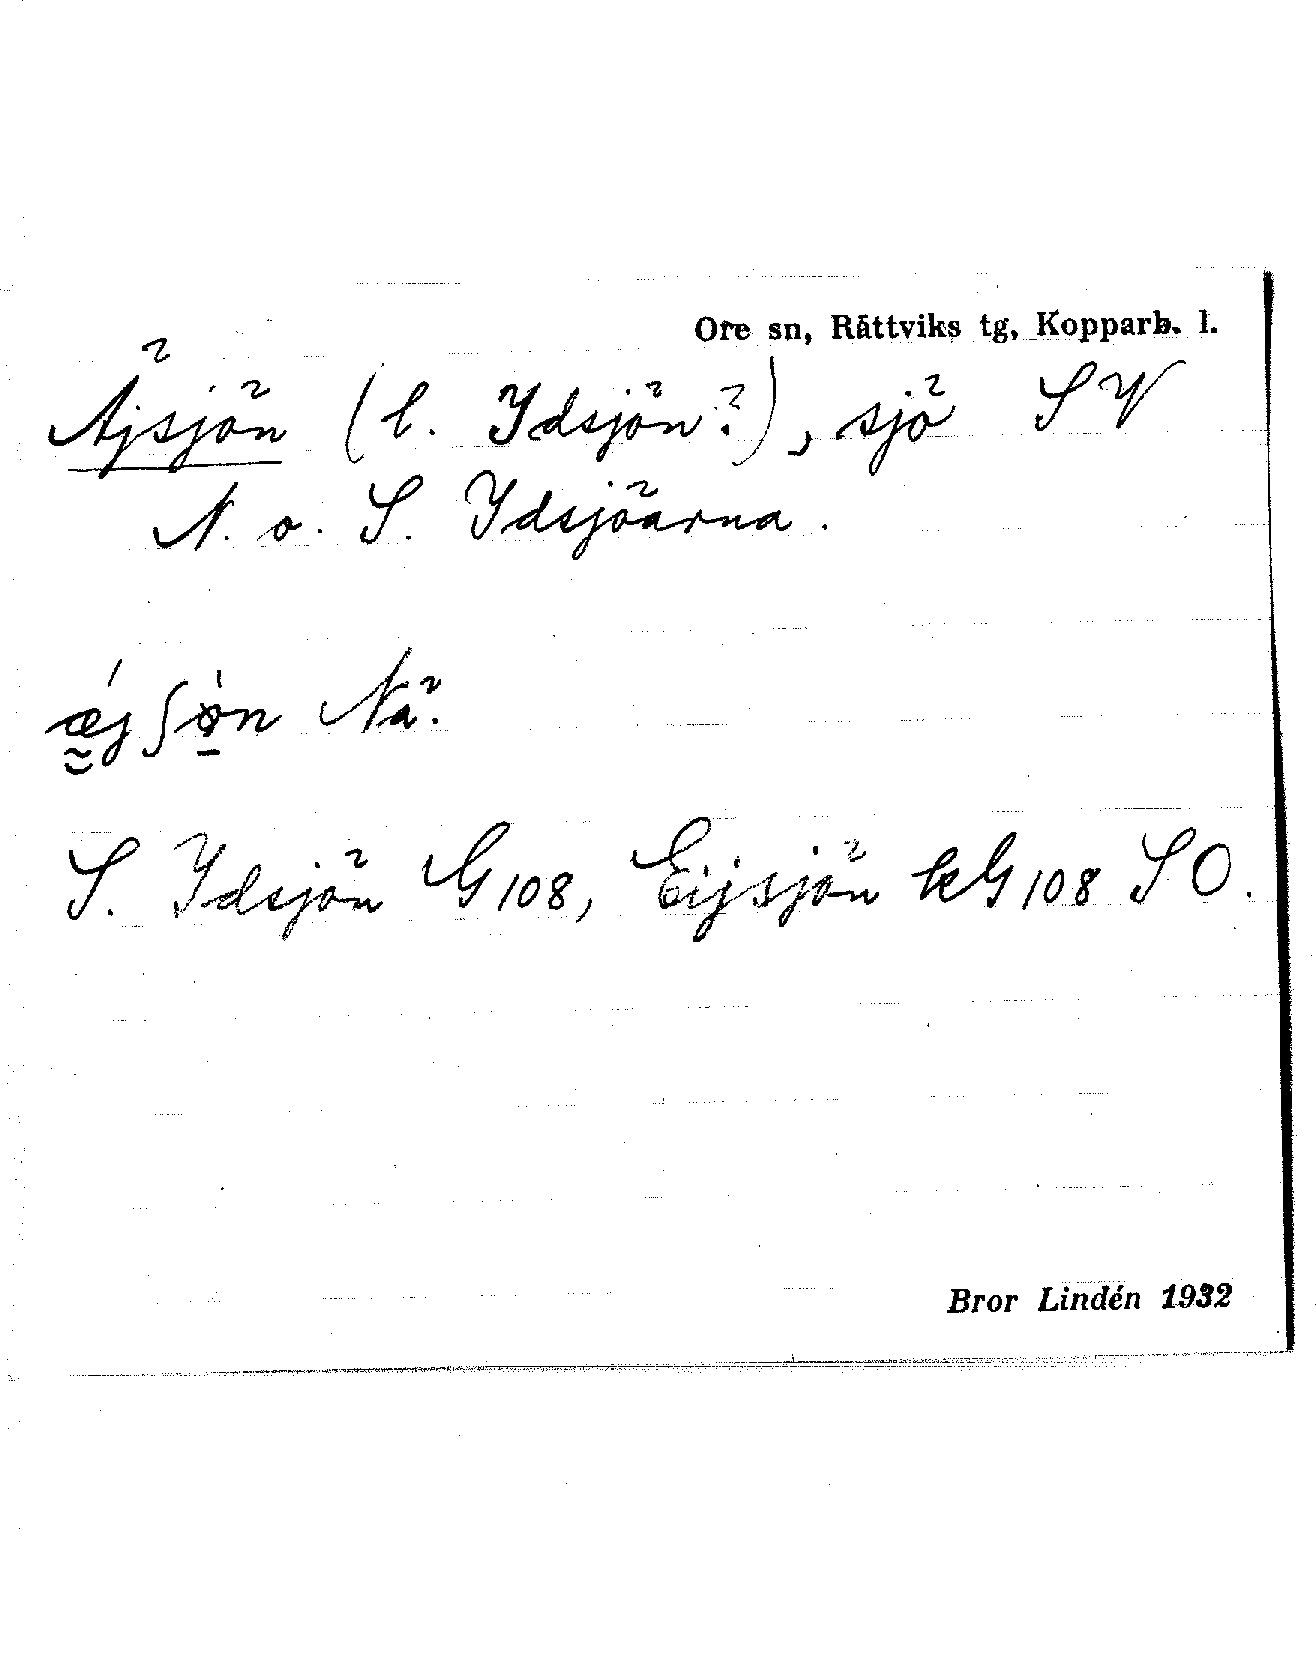 Ore sn, Rättviks tg, Kopparb. l.
Äjsjön (l. Ydsjön?), sjö SV
N. o. S. Ydsjöarna.
æjʃøn Nä.
S. Ydsjön G108, Eijsjön kG108 SO.
Bror Lindén 1932